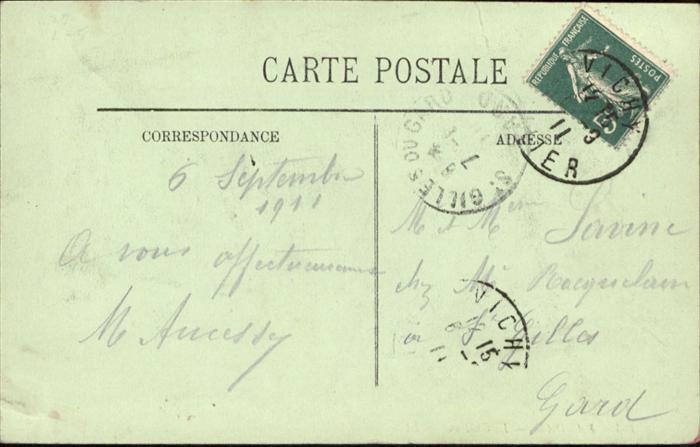 CARTE POSTALE
CORRESPONDANCE
6 Septembre
1911
A vous affectueusement
M
ADRESSE
M et Mme
chez Mr
à St Gilles
Gard
REPUBLIQUE FRANÇAISE
POSTES
VICHY
11
ALLIER
ST GILLES DU GARD
VICHY
15
11